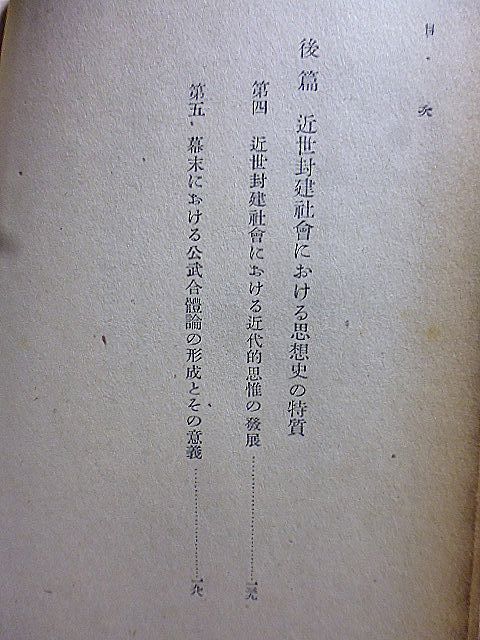 目次
後篇 近世封建社會における思想史の特質
第四 近世封建社會における近代的思惟の發展
第五 幕末における公武合體論の形成とその意義